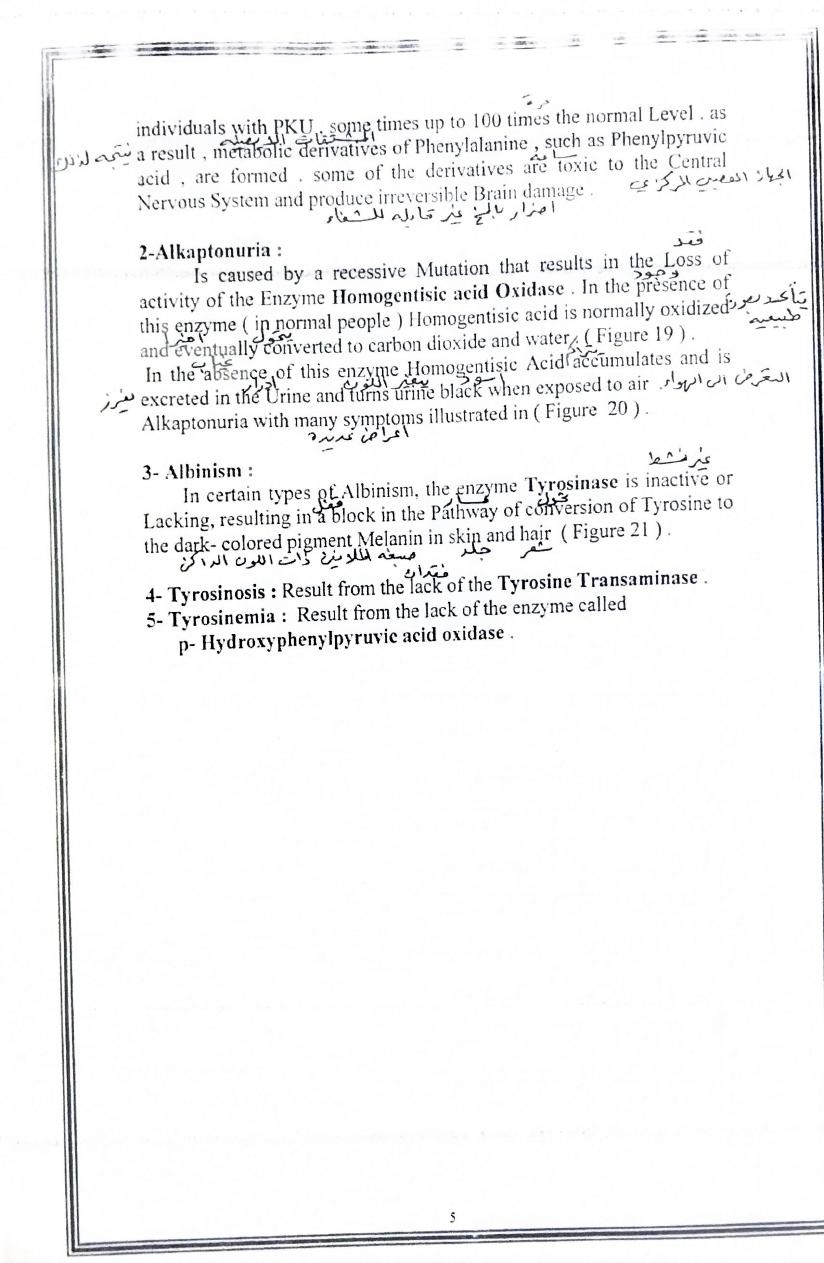 مرة
individuals with PKU , some times up to 100 times the normal Level . as
المشتقات الايضية
نتيجة لذلك a result , metabolic derivatives of Phenylalanine , such as Phenylpyruvic
سامة
acid , are formed . some of the derivatives are toxic to the Central
الجهاز العصبي المركزي
Nervous System and produce irreversible Brain damage .
اضرار بالمخ غير قابله للشفاء
2-Alkaptonuria :
فقد
Is caused by a recessive Mutation that results in the Loss of
وجود
activity of the Enzyme Homogentisic acid Oxidase . In the presence of
this enzyme ( in normal people ) Homogentisic acid is normally oxidized يتأكسد بصورة
طبيعية
اخيرا يتحول
and eventually converted to carbon dioxide and water , ( Figure 19 ) .
غياب يتراكم
In the absence of this enzyme Homogentisic Acid accumulates and is
يفرز ادرار يتغير اللون اسود
excreted in the Urine and turns urine black when exposed to air . التعرض الى الهواء
Alkaptonuria with many symptoms illustrated in ( Figure 20 ) .
اعراض عديدة
3- Albinism :
غير نشط
In certain types of Albinism, the enzyme Tyrosinase is inactive or
مسار تحول
Lacking, resulting in a block in the Pathway of conversion of Tyrosine to
the dark- colored pigment Melanin in skin and hair ( Figure 21 ) .
صبغة الملانين ذات اللون الداكن جلد شعر
فقدان
4- Tyrosinosis : Result from the lack of the Tyrosine Transaminase .
5- Tyrosinemia : Result from the lack of the enzyme called
p- Hydroxyphenylpyruvic acid oxidase .
5